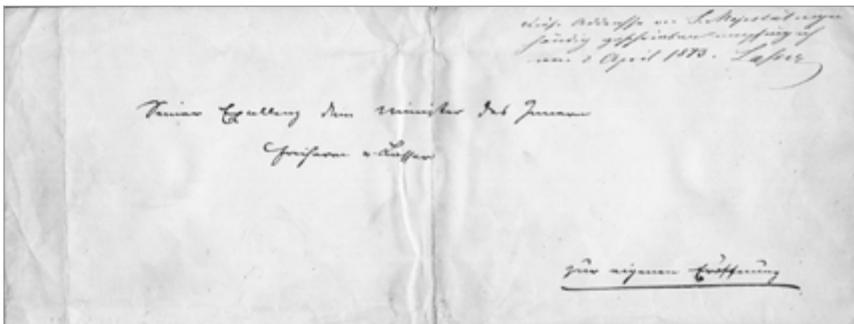 diese Addresse von Sr Majestät eigen
händig geschrieben empfing ich
am 2 April 1873. Lasser
Seiner Excellenz dem Minister des Innern
Freiherrn v. Lasser
zur eigenen Eröffnung